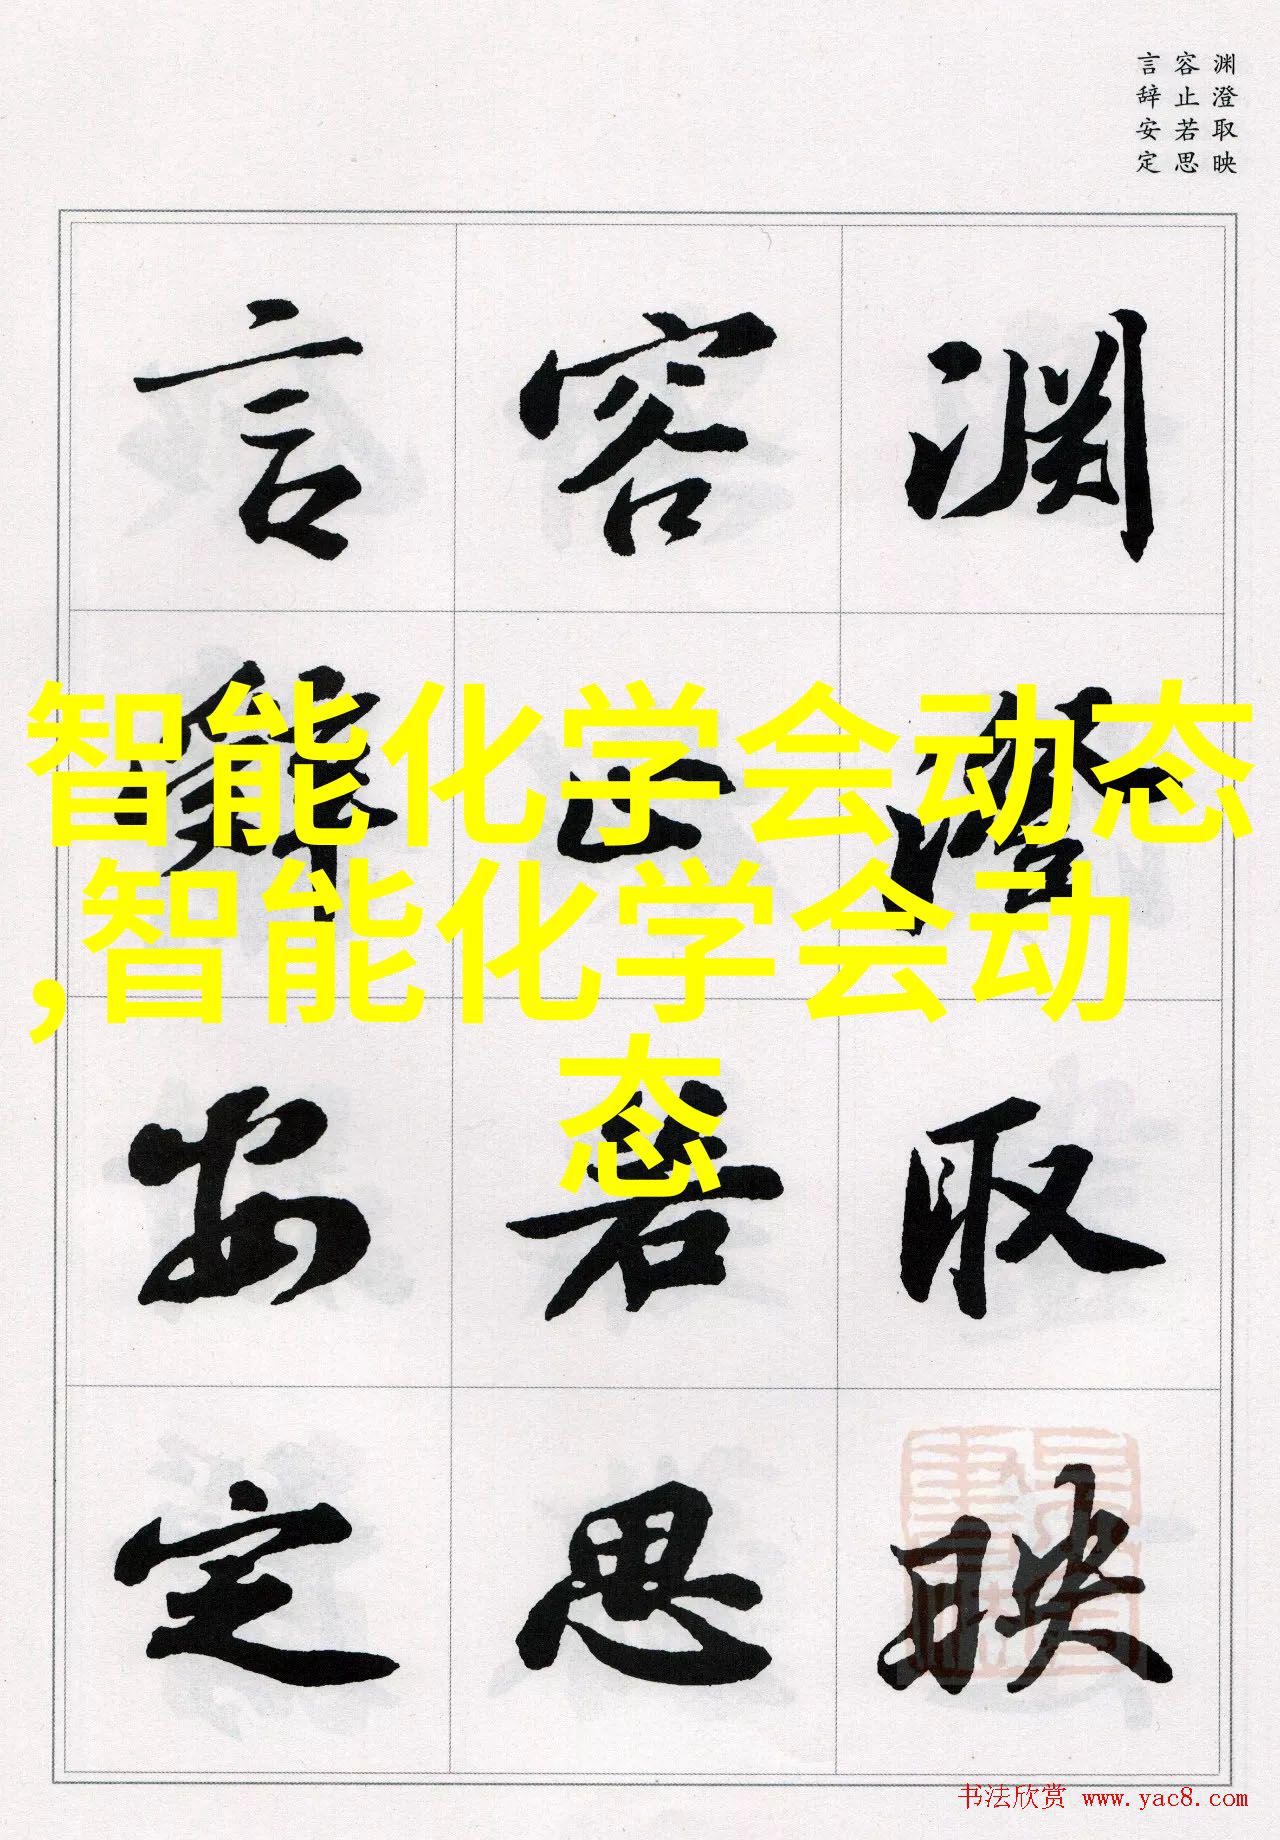 渊澄取映
容止若思
言辞安定
渊澄取映
容止若思
言辞安定
智能化学会动态
,智能化学会动
态
书法欣赏 www.yac8.com